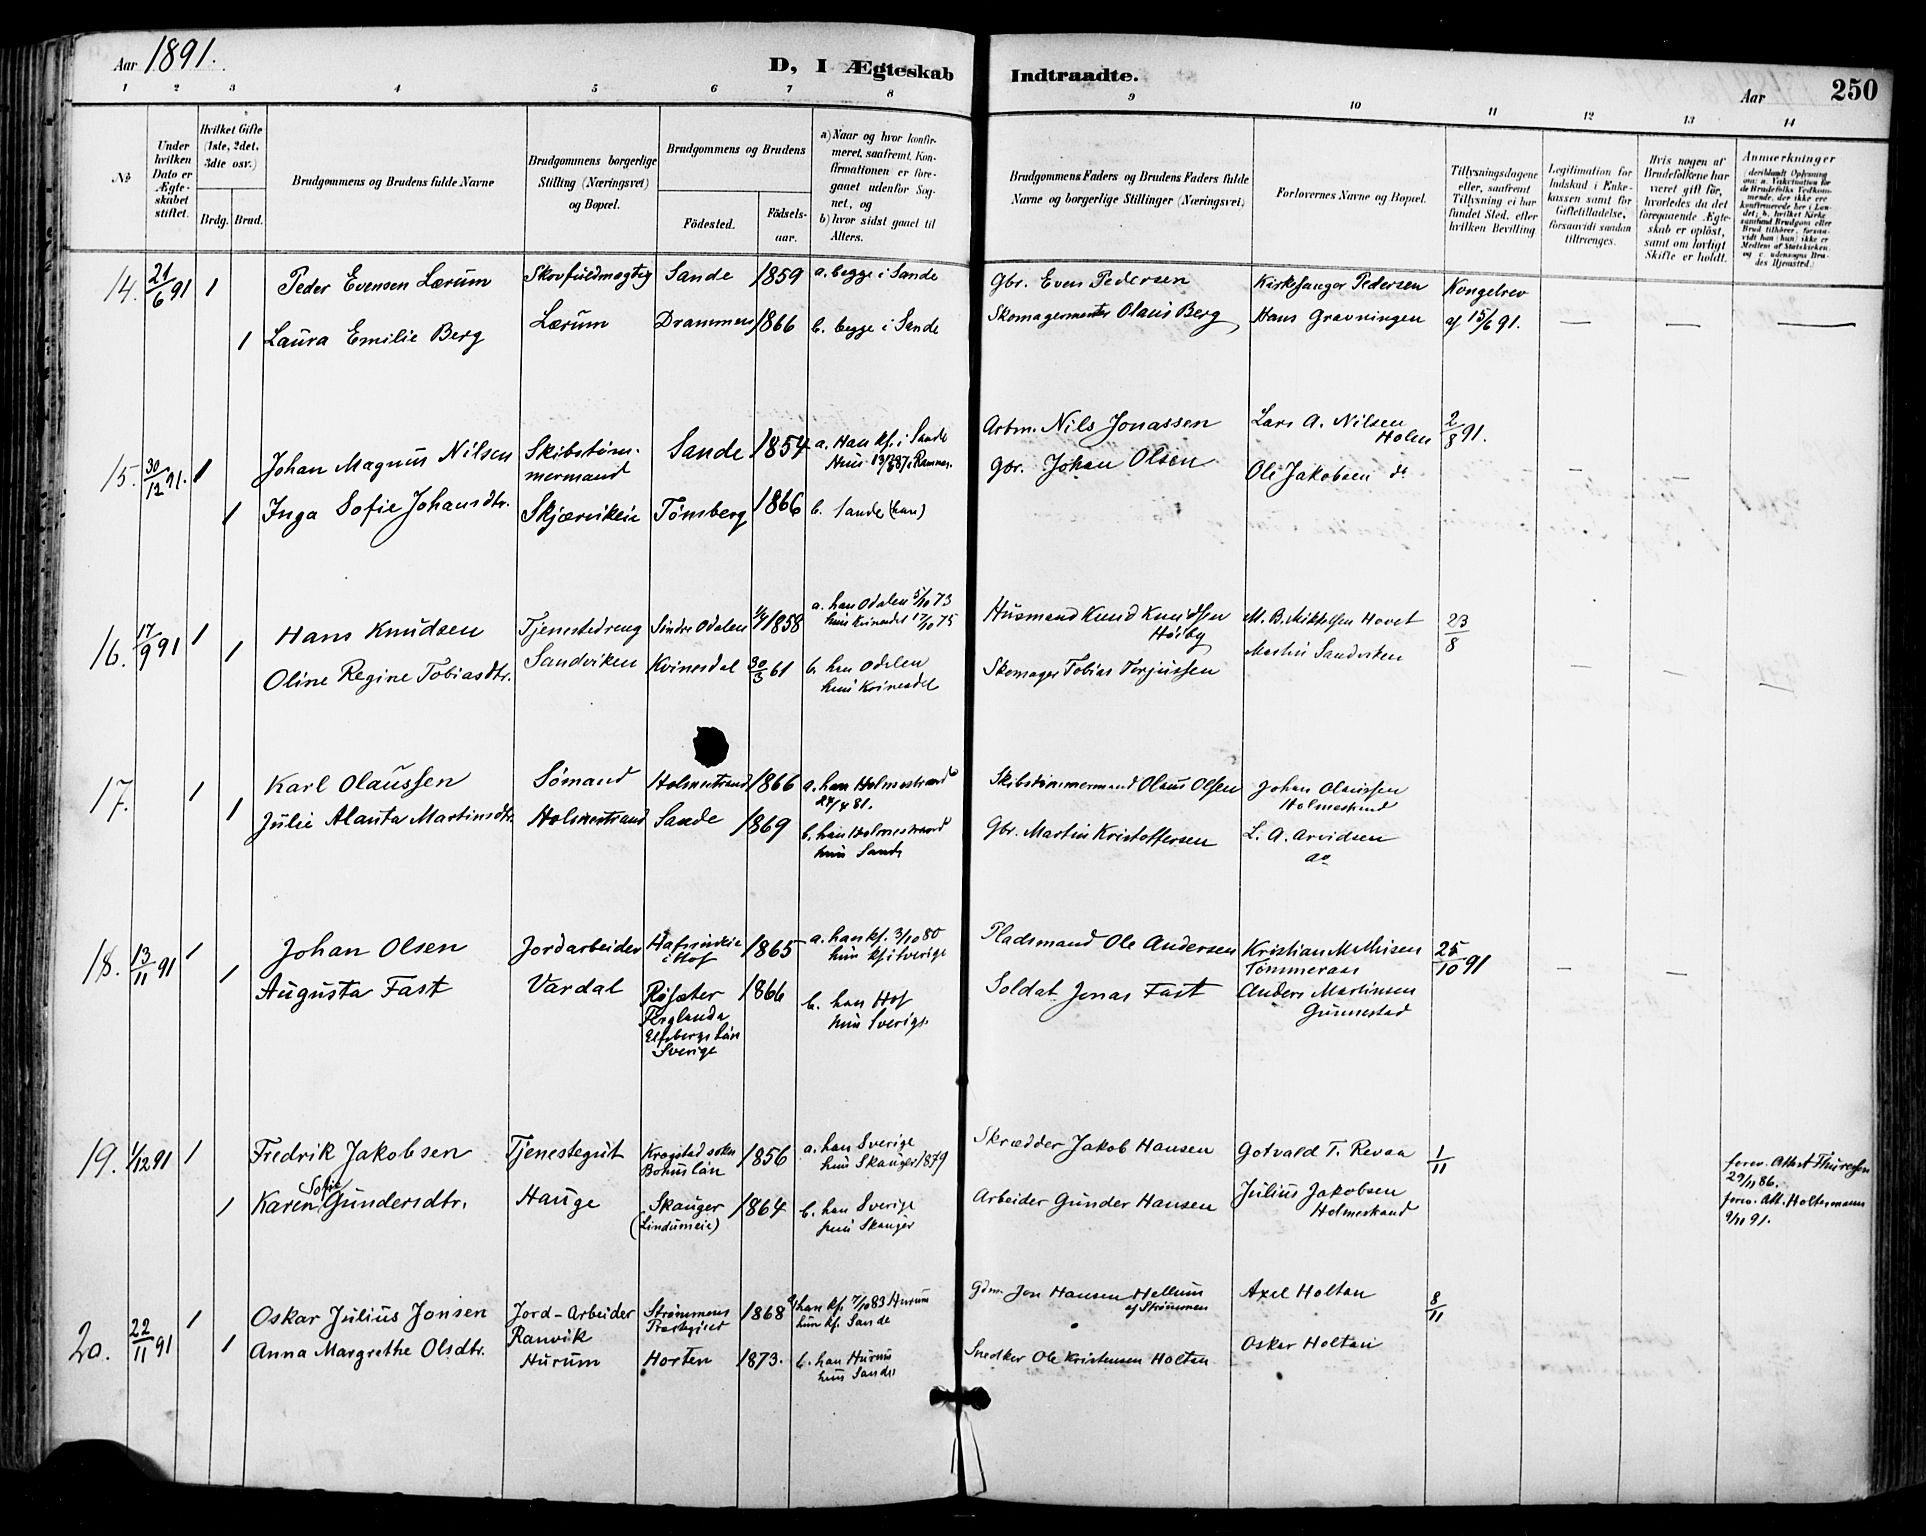 Aar 1891.
D, I Ægteskab Indtraadte.
Aar 250
1 2 3 4 5 6 7 8 9 10 11 12 13 14
No
Under hvilken Dato er Ægteskabet stiftet.
Hvilket Gifte (1ste, 2det, 3die osv.)
Brdg. Brud.
Brudgommens og Brudens fulde Navne
Brudgommens borgerlige Stilling (Næringsvei) og Bopæl.
Brudgommens og Brudens
Fødested.
Fødselsaar.
a) Naar og hvor konfirmeret, saafremt Konfirmationen er foreganet udenfor Sognet, og
b) hvor sidst gaaet til Alters.
Brudgommens Faders og Brudens Faders fulde Navne og borgerlige Stillinger (Næringsvei)
Forlovernes Navne og Bopæl.
Tillysningsdagene eller, saafremt Tillysning ei har fundet Sted, efter hvilken Bevilling.
Legitimation for Indskud i Enkekassen samt for Giftetilladelse, forsaavidt saadan tiltrænges.
Hvis nogen af Brudefolkene har været gift før, hvorledes da det foregaaende Ægteskab er opløst, samt om lovligt Skifte er holdt.
Anmærkninger
14. 21/6 91 1 Peder Evensen Lærum Skovfuldmægtig Sande 1859 a. begge i Sande Gbr. Even Pedersen Kirkesanger Pedersen Kongebrev
1 Laura Emilie Berg Lærum Drammen 1866 b. begge i Sande Skomagermester Olaus Berg Hans Gravningen af 15/6 91. — — —
15. 30/12 91. 1 Johan Magnus Nilsen Skibstømmermand Sande 1854 a. Han kf. i Sande Arbm. Nils Jonassen Lars A. Nilsen Holm 2/8 91.
1 Inga Sofie Johansdtr. Skjærvikeie Tønsberg 1866 b. Sande (han) Gbr. Johan Olsen Ole Jakobsen do
16. 17/9 91 1 Hans Knudsen Tjenestedreng Søndre Odalen 1858 a. han Odalen 5/10 73 hun Kvinesdal 17/10 75 Husmand Knud Knudsen M. B. Mikkelsen Hovet 23/8
1 Oline Regine Tobiasdtr. Sandviken Kvinesdal 30/3 61 b. han Odalen hun Kvinesdal Skomager Tobias Terjussen Martin Sandviken — — —
17. 1 Karl Olaussen Sømand Holmestrand 1866 a. han Holmestrand Skibstømmermand Olaus Olsen Johan Olaussen Holmestrand
1 Julie Alanta Martinsdtr. Holmestrand Sande 1869 b. han Holmestrand hun Sande Gbr. Martin Kristoffersen L. A. Arvidsen do
18. 13/11 91 1 Johan Olsen Jordarbeider i Hof 1865 a. han kf. 3/10 80 hun kf. i Sverige Pladsmand Ole Andersen Kristian M. Tømmeraas 25/10 91
1 Augusta Fast Vardal Elfsborgs Län Sverige 1866 b. han Hof hun Sverige Soldat Jonas Fast Anders Martinsen Gunnestad — —
19. 1/12 91 1 Fredrik Jakobsen Tjenestegut Krogstad sokn Bohuslän 1856 a. han Sverige hun Skauger 1879 Skrædder Jakob Hansen Gotvald T. Revaa 1/11
1 Karen Sofie Gundersdtr. Hauge Skauger (Lindumeie) 1864 b. han Sverige hun Skauger Arbeider Gunder Hansen Julius Jakobsen Holmestrand
forev. Attest Thuresen 29/11 86. forev. Att. Holtermann 9/11 91.
20. 22/11 91 1 Oskar Julius Jonsen Jord-Arbeider Strømmens Præstegjeld 1868 a. han kf. 7/10 83 Hurum hun kf. Sande Gdm. Jon Hansen Hellum af Strømmen Axel Holtan 8/11
1 Anna Margrethe Olsdtr. Ranvik Hurum Horten 1873. b. han Hurum hun Sande Snedker Ole Kristensen Holtan Oskar Holtan